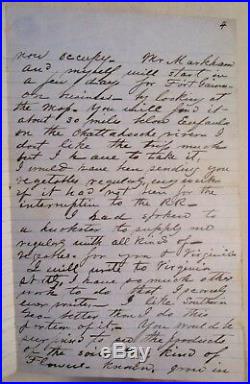 4
now occupy. Mr. Markham
and myself will start in
a few days for Fort Gaines
on business - by looking at
the map. You will find it
about 30 miles below Eufaula
on the Chattahoochee river. I
dont like the trip much
but I have to take it,
I would have been sending you
vegetables regularly every week
if it had not been for the
interruption to the RR-
I had spoken to
a huckster to supply me
regular with all kind of
vegetables for you &
I will write to Virginia
at I have so much other
work to do that I scarcely
ever write - I like Southern
Geo better than I do this
portion of it - You would be
surprised to see the products
of the soil - all kind of
Flowers Known, grow in